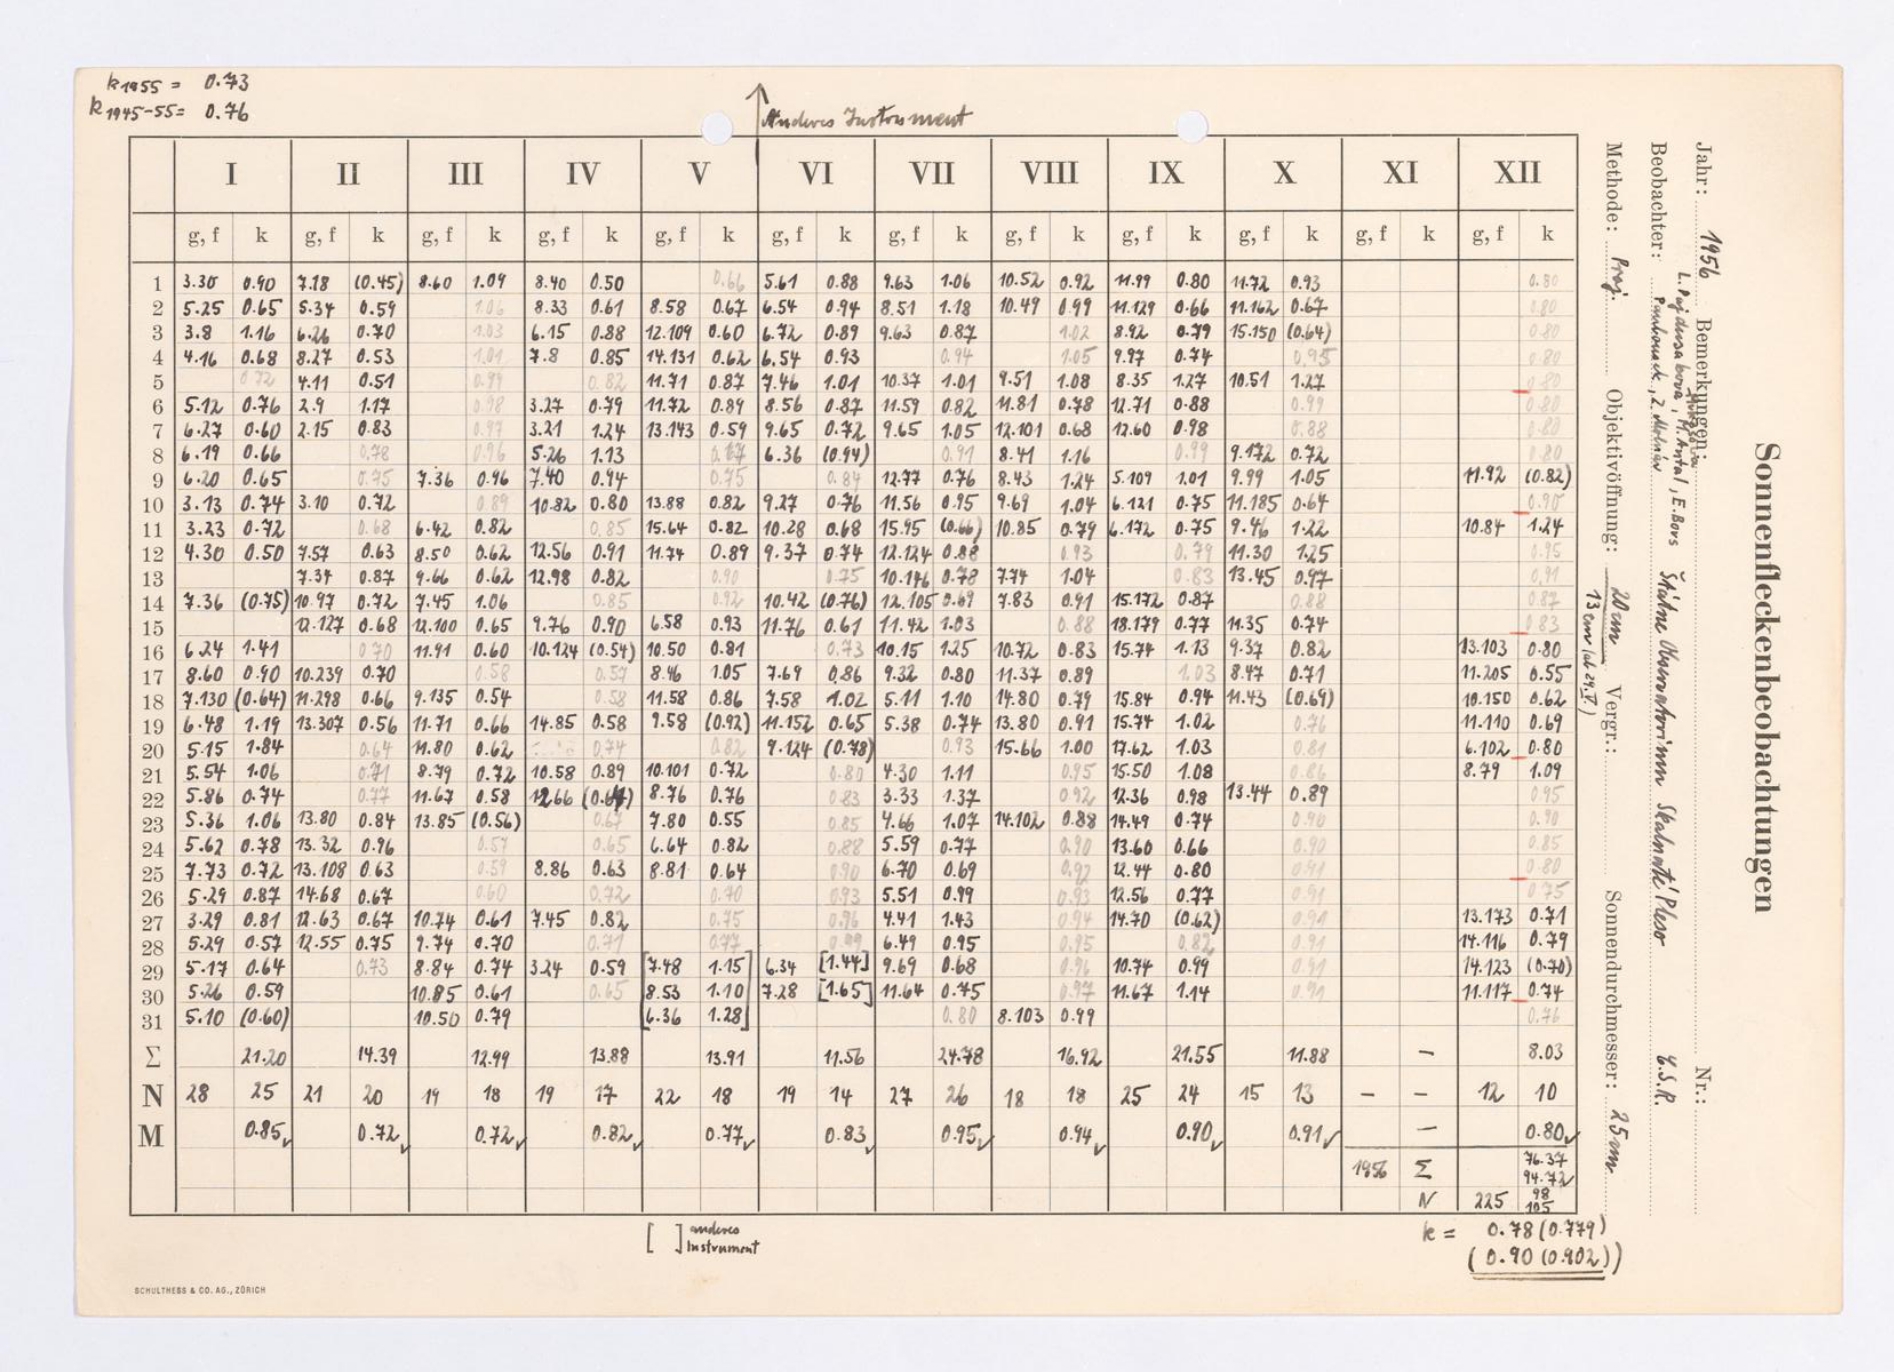 k1955 = 0.73
k1945-55 = 0.76
Anderes Instrument
I II III IV V VI VII VIII IX X XI XII
g, f k g, f k g, f k g, f k g, f k g, f k g, f k g, f k g, f k g, f k g, f k g, f k
1 3.30 0.90 7.18 (0.45) 8.60 1.09 8.40 0.50 0.66 5.61 0.88 9.63 1.06 10.52 0.92 11.99 0.80 11.72 0.93 0.80
2 5.25 0.65 5.34 0.59 1.06 8.33 0.61 8.58 0.67 6.54 0.94 8.51 1.18 10.49 0.99 11.129 0.66 11.162 0.67 0.80
3 3.8 1.16 6.26 0.70 1.03 6.15 0.88 12.109 0.60 6.72 0.89 9.63 0.87 1.02 8.92 0.79 15.150 (0.64) 0.80
4 4.16 0.68 8.27 0.53 1.01 7.8 0.85 14.131 0.62 6.54 0.93 0.94 1.05 9.97 0.74 0.95 0.80
5 0.72 4.11 0.51 0.99 0.82 11.71 0.87 7.46 1.01 10.37 1.01 9.51 1.08 8.35 1.27 10.51 1.27 0.80
6 5.12 0.76 2.9 1.17 0.98 3.27 0.79 11.72 0.89 8.56 0.87 11.59 0.82 11.81 0.78 12.71 0.88 0.99 0.80
7 6.27 0.60 2.15 0.83 0.97 3.21 1.24 13.143 0.59 9.65 0.72 9.65 1.05 12.101 0.68 12.60 0.98 0.88 0.80
8 6.19 0.66 0.78 0.96 5.26 1.13 0.67 6.36 (0.94) 0.91 8.41 1.16 0.99 9.172 0.72 0.80
9 6.20 0.65 0.75 7.36 0.96 7.40 0.94 0.75 0.84 12.77 0.76 8.43 1.24 5.109 1.01 9.99 1.05 11.92 (0.82)
10 3.13 0.74 3.10 0.72 0.89 10.82 0.80 13.88 0.82 9.27 0.76 11.56 0.95 9.69 1.04 6.121 0.75 11.185 0.64 0.90
11 3.23 0.72 0.68 6.42 0.82 0.85 15.64 0.82 10.28 0.68 15.95 (0.66) 10.85 0.79 6.172 0.75 9.46 1.22 10.84 1.24
12 4.30 0.50 7.57 0.63 8.50 0.62 12.56 0.91 11.74 0.89 9.37 0.74 12.124 0.88 0.93 0.79 11.30 1.25 0.95
13 7.34 0.87 9.66 0.62 12.98 0.82 0.90 0.75 10.146 0.78 7.74 1.04 0.83 13.45 0.97 0.91
14 7.36 (0.75) 10.97 0.72 7.45 1.06 0.85 0.92 10.42 (0.76) 12.105 0.69 7.83 0.91 15.172 0.87 0.88 0.87
15 12.127 0.68 12.100 0.65 9.76 0.90 6.58 0.93 11.76 0.61 11.42 1.03 0.88 18.179 0.77 11.35 0.74 0.83
16 6.24 1.41 0.70 11.91 0.60 10.124 (0.54) 10.50 0.81 0.73 10.15 1.25 10.72 0.83 15.74 1.13 9.37 0.82 13.103 0.80
17 8.60 0.90 10.239 0.70 0.58 0.57 8.46 1.05 7.69 0.86 9.32 0.80 11.37 0.89 1.03 8.47 0.71 11.205 0.55
18 7.130 (0.64) 11.298 0.66 9.135 0.54 0.58 11.58 0.86 7.58 1.02 5.11 1.10 14.80 0.79 15.84 0.94 11.43 (0.69) 10.150 0.62
19 6.48 1.19 13.307 0.56 11.71 0.66 14.85 0.58 9.58 (0.92) 11.152 0.65 5.38 0.74 13.80 0.91 15.74 1.02 0.76 11.110 0.69
20 5.15 1.84 0.64 11.80 0.62 0.74 0.82 9.124 (0.78) 0.93 15.66 1.00 17.62 1.03 0.81 6.102 0.80
21 5.54 1.06 0.71 8.79 0.72 10.58 0.89 10.101 0.72 0.80 4.30 1.11 0.95 15.50 1.08 0.86 8.79 1.09
22 5.86 0.74 0.77 11.67 0.58 12.66 (0.64) 8.76 0.76 0.83 3.33 1.37 0.92 12.36 0.98 13.44 0.89 0.95
23 5.36 1.06 13.80 0.84 13.85 (0.56) 0.67 7.80 0.55 0.85 4.66 1.07 14.102 0.88 14.49 0.74 0.90 0.90
24 5.62 0.78 13.32 0.96 0.57 0.65 6.64 0.82 0.88 5.59 0.77 0.90 13.60 0.66 0.90 0.85
25 7.73 0.72 13.108 0.63 0.59 8.86 0.63 8.81 0.64 0.90 6.70 0.69 0.92 12.44 0.80 0.91 0.80
26 5.29 0.87 14.68 0.67 0.60 0.72 0.70 0.93 5.51 0.99 0.93 12.56 0.77 0.91 0.75
27 3.29 0.81 12.63 0.67 10.74 0.61 7.45 0.82 0.75 0.96 4.41 1.43 0.94 14.70 (0.62) 0.91 13.173 0.71
28 5.29 0.57 12.55 0.75 9.74 0.70 0.71 0.77 0.99 6.49 0.95 0.95 0.82 0.91 14.116 0.79
29 5.17 0.64 0.73 8.84 0.74 3.24 0.59 [7.48 1.15] 6.34 [1.44] 9.69 0.68 0.96 10.74 0.99 0.91 14.123 (0.70)
30 5.26 0.59 10.85 0.61 0.65 8.53 1.10 7.28 [1.65] 11.64 0.75 0.97 11.67 1.14 0.91 11.117 0.74
31 5.10 (0.60) 10.50 0.79 [6.36 1.28] 0.80 8.103 0.99 0.76
Σ 21.20 14.39 12.99 13.88 13.91 11.56 24.78 16.92 21.55 11.88 – 8.03
N 28 25 21 20 19 18 19 17 22 18 19 14 27 26 18 18 25 24 15 13 – – 12 10
M 0.85 0.72 0.72 0.82 0.77 0.83 0.95 0.94 0.90 0.91 – 0.80
1956 Σ 76.37
94.72
N 225 98
105
[ ] anderes
Instrument
k = 0.78 (0.779)
(0.90 (0.902))
SCHULTHESS & CO. AG., ZÜRICH
Sonnenfleckenbeobachtungen
Jahr: 1956 Bemerkungen: Nr.:
Beobachter: L. Pajdušáková, M. Antal, E. Bors
Z. Štátne Observatorium Skalnaté Pleso Č.S.R.
Methode: Proj. Objektivöffnung: 20 cm Vergr.: Sonnendurchmesser: 25 cm
13 cm (ab 29.V.)